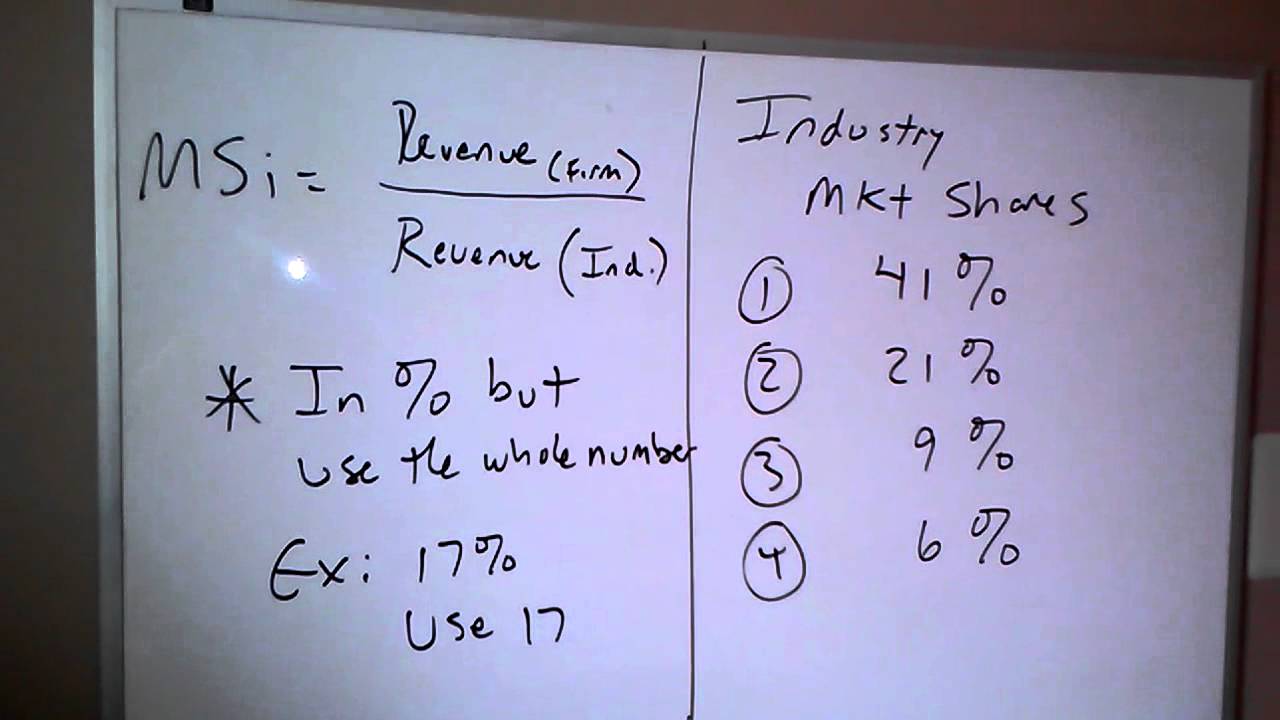 MSi = Revenue (Firm)
Revenue (Ind.)
* In % but
use the whole number
Ex: 17%
Use 17
Industry
Mkt Shares
① 41%
② 21%
③ 9%
④ 6%